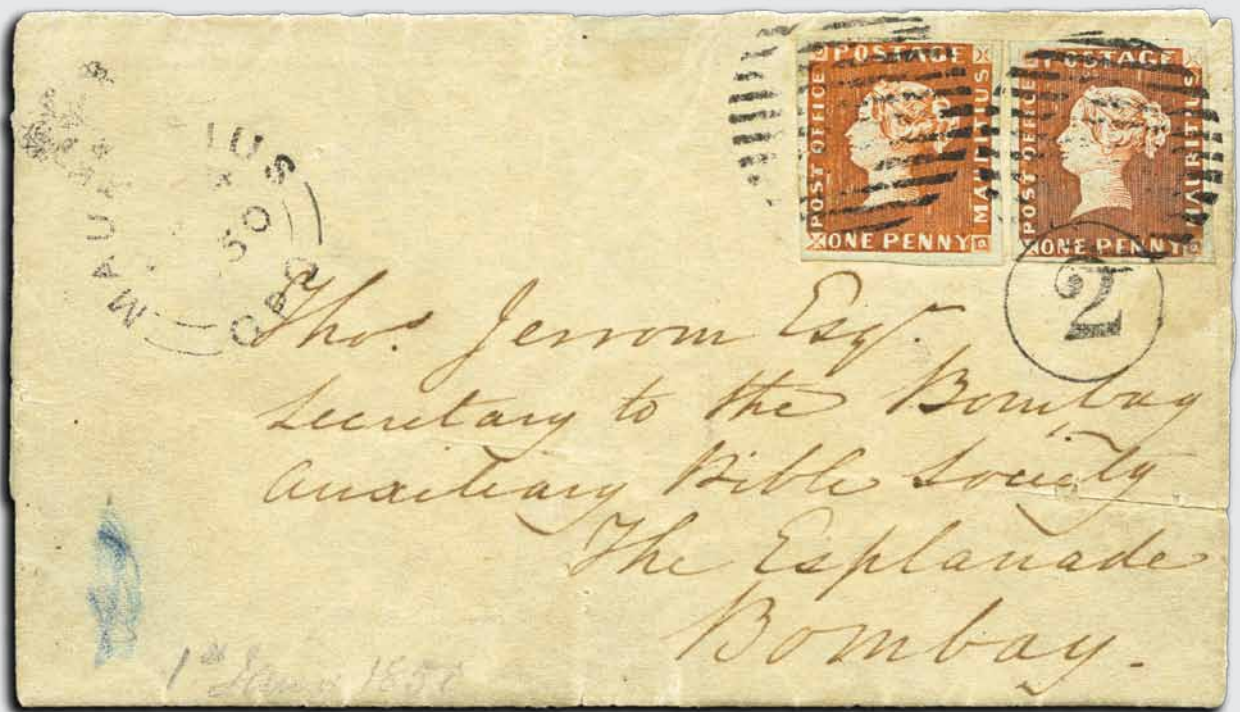 POSTAGE
POST OFFICE
MAURITIUS
ONE PENNY
POSTAGE
POST OFFICE
MAURITIUS
ONE PENNY
MAU IUS
50
GPO
2
Thos. Jerrom Esqr.
Secretary to the Bombay
Auxiliary Bible Society
The Esplanade
Bombay.
1st